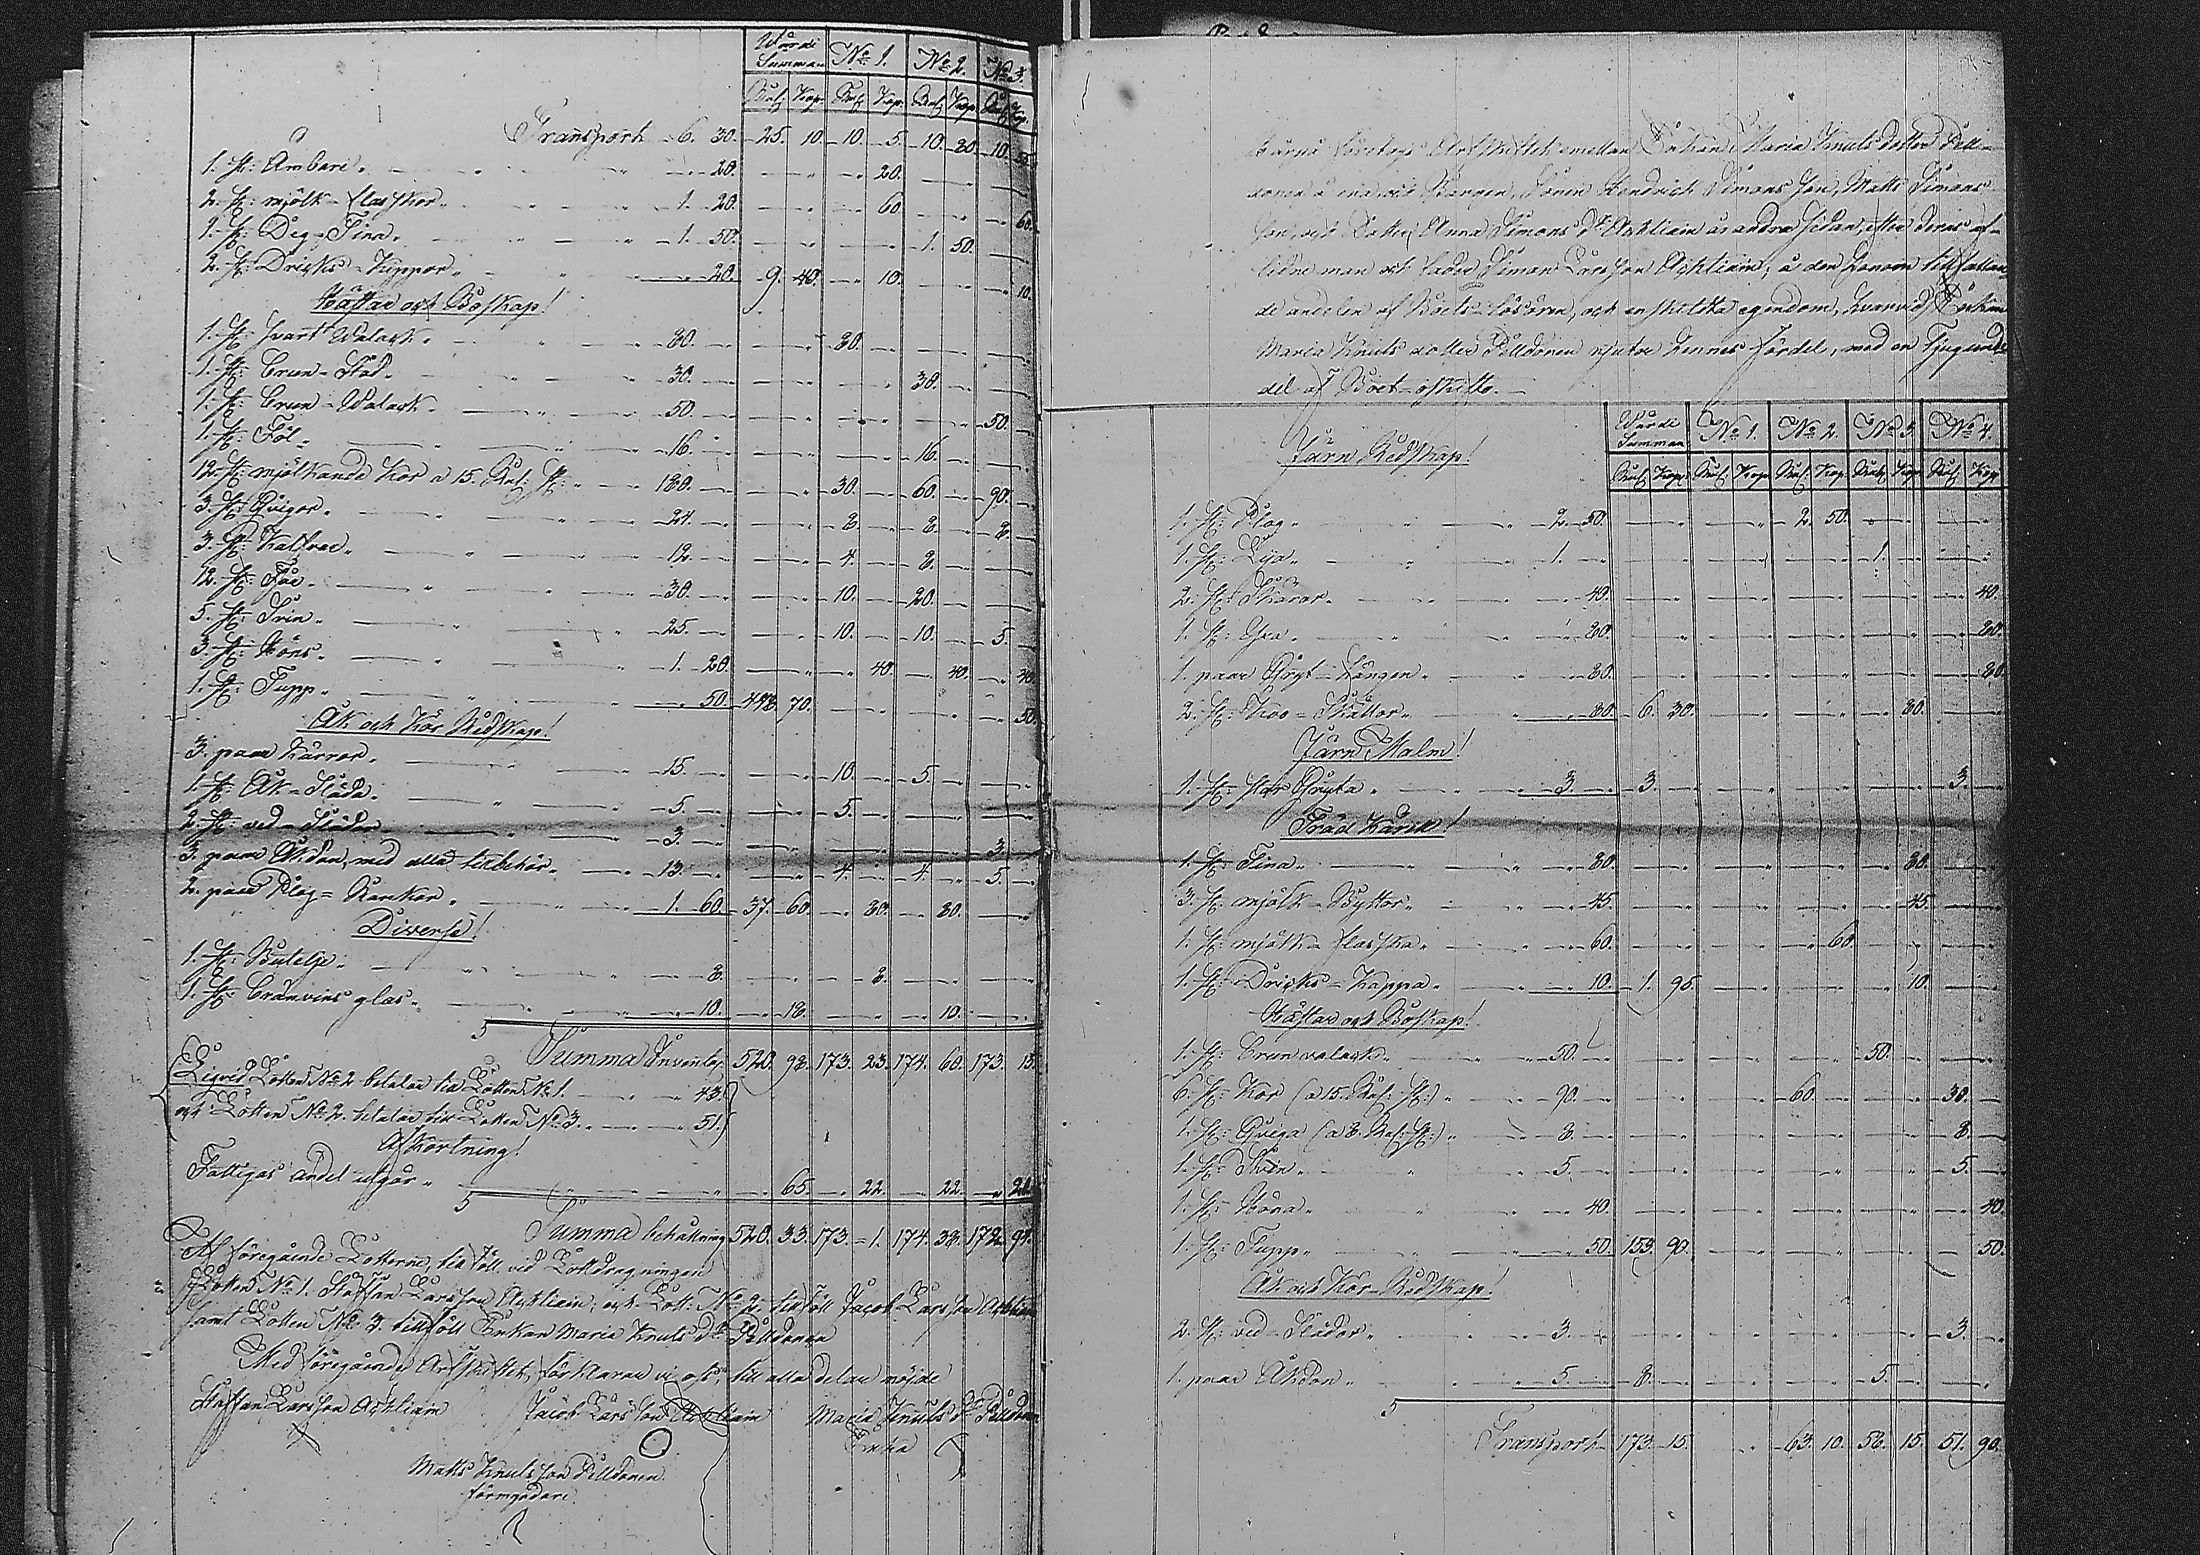 Wärde Summan No 1. No 2. No 3.
Rub. Kop. Rub. Kop. Rub. Kop. Rub. Kop.
Transport 6. 30. 25. 10 10. 5. 10. 10.
1. st: Ämbare. 20. 20.
2. st: mjölk-flaskor. 1. 20. 60 60.
1. st: Deg-Tina. 1. 50. 1. 50.
2. st: Dricks-Kappor. 20. 9. 40. 10. 10.
Hästar och Boskap!
1. st: svart Walack. 80. 80.
1. st: brun-Stod. 30. 30.
1. st: brun-Walack. 50. 50.
1. st: Föl. 16. 16.
12. st: mjölkande Kor a 15. Rub: st: 180. 30. 60. 90.
3. st: Qvigor. 24. 8. 8. 8.
3. st: Kalfvar. 12. 4. 8.
12. st: Får. 30. 10. 20.
5. st: Svin. 25. 10. 10. 5.
3. st: Höns. 1. 20. 40 40. 40
1. st: Tupp. 50. 448. 70. 50.
Åk och Kör Redskap!
3. paar Kärror. 15. 10. 5.
1. st: Åk-Släda. 5. 5.
2. st: ved-Slädor. 3. 3.
3. paar Åkdon, med alla tillbehör. 13. 4. 4. 5.
2. paar Plog- 1. 60. 37. 60. 80. 80.
Diverse!
1. st: Butelje. 8. 8.
1. st: Bränvins glas. 10. 18. 10.
Summa Inventar. 520. 98. 173. 23. 174. 60. 173. 15.
Liqvid Lotten No 2 betalar till Lotten No 1. 43.
och Lotten No 2. betalar till Lotten No 3. 51.
Afkortning!
Fattigas andel utgår 65. 22. 22.
Summa behållning 520. 33. 173. 1. 174. 38. 172.
Af föregående Lotterne, tillföll vid Lottdragningen
Lotten No 1. Staffan Larsson Ackliain, och Lott: No 2. tillföll Jacob Larsson
samt Lotten No 3. tillföll Enkan Maria Knuts dr Pelldonen
Med föregående Arfskiftet, förklarar vi oss, till alla delar nöjde
Staffan Larsson Ackliain Jacob Larsson Ackliain Maria Knuts dr
Enka
Matts Knutsson Pelldonen
förmyndare
Arfskiftet emellan Enkan Maria Knuts dotter Pell-
donen å ena och Sonen Hendrich Simons son, Matts Simons
son, och Dotter Anna Simons dr Ackliain å andra sidan, efter deras af-
lidne man och fader Simon Larsson Ackliain, å den honom tillfallan-
de andelen af Boets Lösören, och enskilta egendom, hvarvid Enkan
Maria Knuts dotter Pelldonen njuter hennes fördel, med en Tjugonde
del af Boet oskifto.
Wärde Summan No 1. No 2. No 3. No 4.
Rub. Kop. Rub. Kop. Rub. Kop. Rub. Kop. Rub. Kop.
Järn Redskap!
1. st: Plog. 2. 50. 2. 50.
1. st: Lija. 1. 1.
2. st: Skäror. 40. 40.
1. st: Yxa. 80. 80.
1. paar Gryt-Kängor. 80. 80.
2. st: Koo-Skällor. 80. 6. 30. 80.
Järn Malm!
1. st: Gryta 3. 3. 3.
Träd Kärill!
1. st: Tina. 80. 80.
3. st: mjölk-Byttor. 45. 45.
1. st: mjölk-flaska. 60. 60.
1. st: Dricks-Kappa. 10. 1. 95. 10.
Hästar och Boskap!
1. st: brun valack. 50. 50.
6. st: Kor (a 15. Rub: st:) 90. 60. 30.
1. st: Qviga (a 8. Rub: st:) 8. 8.
1. st: Svin. 5. 5.
1. st: Höna. 40. 40.
1. st: Tupp. 50. 153. 90. 50.
Åk och Kör-Redskap!
2. st: ved-Slädor. 3. 3.
1. paar Åkdon. 5. 8. 5.
Transport 173. 15. 63. 10. 58. 15. 51. 90.